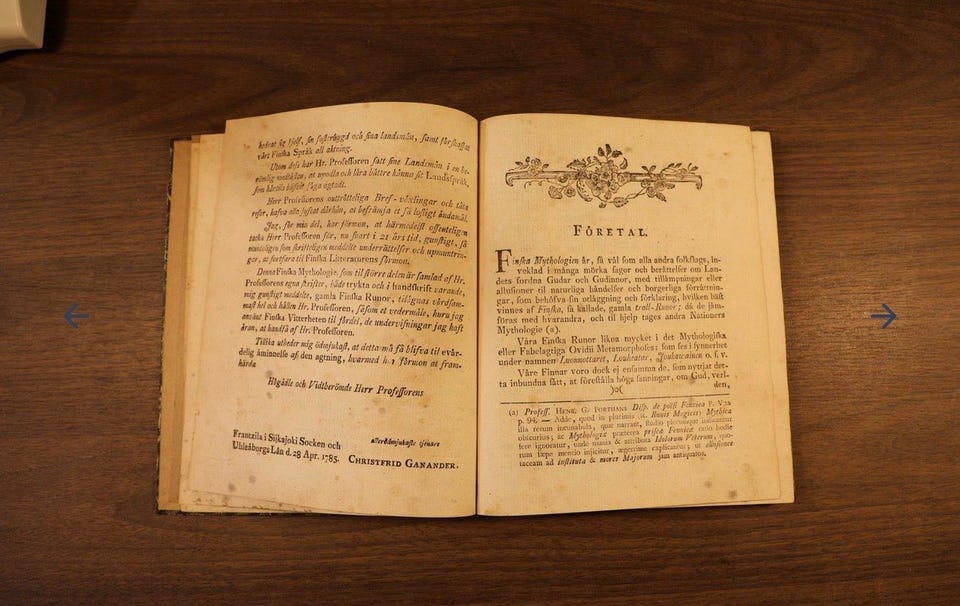 hedrat sig sjelf, sin fosterbygd och sina landsmän, samt förskaffat
vårt Finska Språk all aktning.
Utom dess har Hr. Professoren satt sine Landsmän i en be-
römlig medtäflan, at upodla och lära bättre känna sit Landsspråk,
som härtils
Herr Professorens outtrötteliga Bref-växlingar och täta
resor, hafva alla syftat därhän, at befrämja et så lofligt ändamål.
Jag, för min del, har förmon, at härmedelst offenteligen
tacka Herr Professoren för, nu snart i 21 års tid, gunstigt, så
munteligen som skrifteligen meddelte underrättelser och upmuntrin-
gar, at fortfara til Finska Litteraturens förmon.
Denna Finska Mythologie, som til större delen är samlad af Hr.
Professorens egna skrifter, både tryckta och i handskrift varande,
mig gunstigt meddelte, gamla Finska Runor, tilägnas vördsam-
mast hel och hållen Hr. Professoren, såsom et vedermäle, huru jag
användt Finska Vitterheten til fördel, de undervisningar jag haft
äran, at handfå af Hr. Professoren.
Tillika utbeder mig ödmjukast, at detta må få blifva til evär-
delig åminnelse af den agtning, hvarmed har förmon at fram-
härda
Högädle och Vidtberömde Herr Professorens
allerödmjukaste tjenare
Frantzila i Sijkajoki Socken och
Uhleåborgs Län d. 28 Apr. 1785.
CHRISTFRID GANANDER.
FÖRETAL.
Finska Mythologien är, så väl som alla andra folkslags, in-
veklad i många mörka sagor och berättelser om Lan-
dets fordna Gudar och Gudinnor, med tillämpningar eller
allusioner til naturliga händelser och borgerliga förrättnin-
gar, som behöfva sin utläggning och förklaring, hvilken bäst
vinnes af Finska, så kallade, gamla troll-Runor; då de jäm-
föras med hvarandra, och til hjelp tages andra Nationers
Mythologie (a).
Våra Finska Runor likna mycket i det Mythologiska
eller Fabelagtiga Ovidii Metamorphoses; som ses i synnerhet
under namnen Luonnottaret, Louheatar, Joukawainen o. s. v.
Våre Finnar voro dock ej ensamma de, som nyttjat det-
ta inbundna sätt, at föreställa höga sanningar, om Gud, verl-
)o( den,
(a) Profess. HENR. G. PORTHANS Disp. de poësi Fennica P. V:ta
p. 94. — Adde, quod in plurimis (sc. Runis Magicis) Mythica
illa rerum incunabula, quæ narrant, studio plerumque involvantur
obscurius; ut Mythologiæ præterea priscæ Fennicæ ratio hodie
fere ignoratur, unde munia & attributa Idolorum Veterum, quo-
rum sæpe mentio injicitur, ægerrime explicantur; ut allusiones
taceam ad instituta & mores Majorum jam antiquatos.